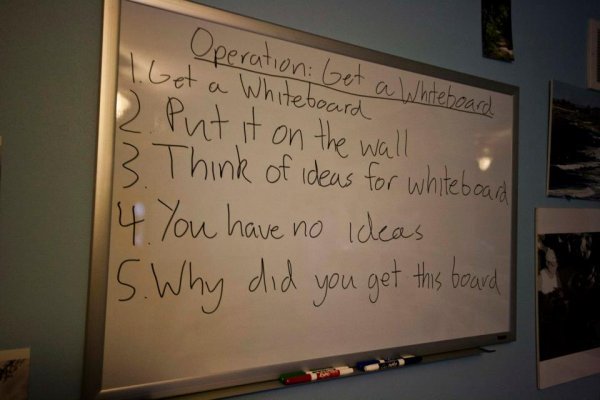 Operation: Get a Whiteboard
1. Get a Whiteboard
2. Put it on the wall
3. Think of ideas for whiteboard
4. You have no ideas
5. Why did you get this board